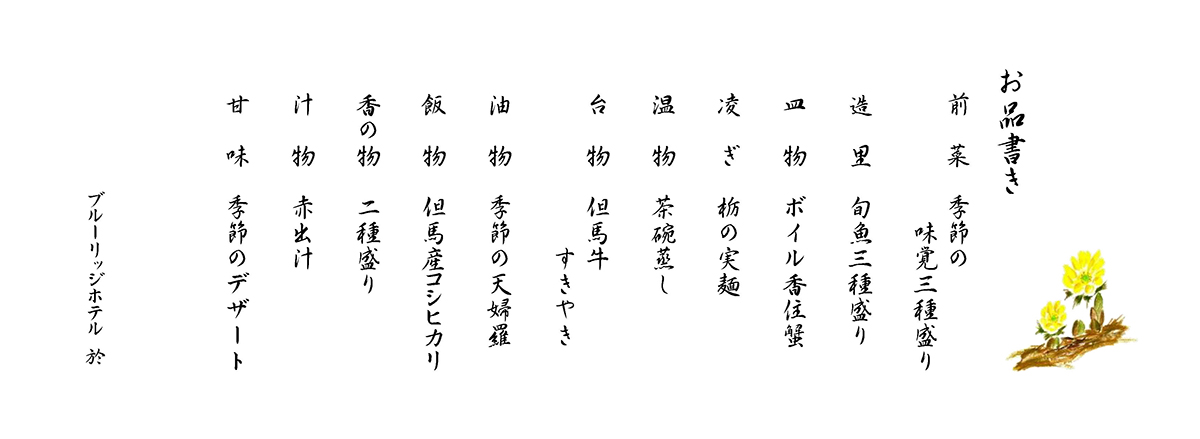 お品書き
前菜 季節の
味覚三種盛り
造里 旬魚三種盛り
皿物 ボイル香住蟹
凌ぎ 栃の実麺
温物 茶碗蒸し
台物 但馬牛
すきやき
油物 季節の天婦羅
飯物 但馬産コシヒカリ
香の物 二種盛り
汁物 赤出汁
甘味 季節のデザート
ブルーリッジホテル 於